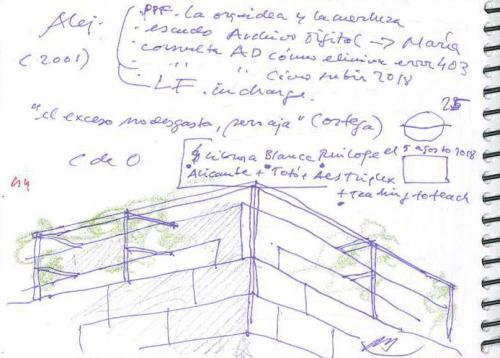 Alej.
(2001)
PPF. La orquidea y la
escudo Archivo Digital → María
consulta AD cómo elimina error 403
" " " Cómo subir 2018
LF. in charge.
"el exceso no desgasta, " (Ortega)
25
C de O
Blanca el 5 agosto 2018
Alicante + Totó + Aestriplex
+ teaching to teach
44